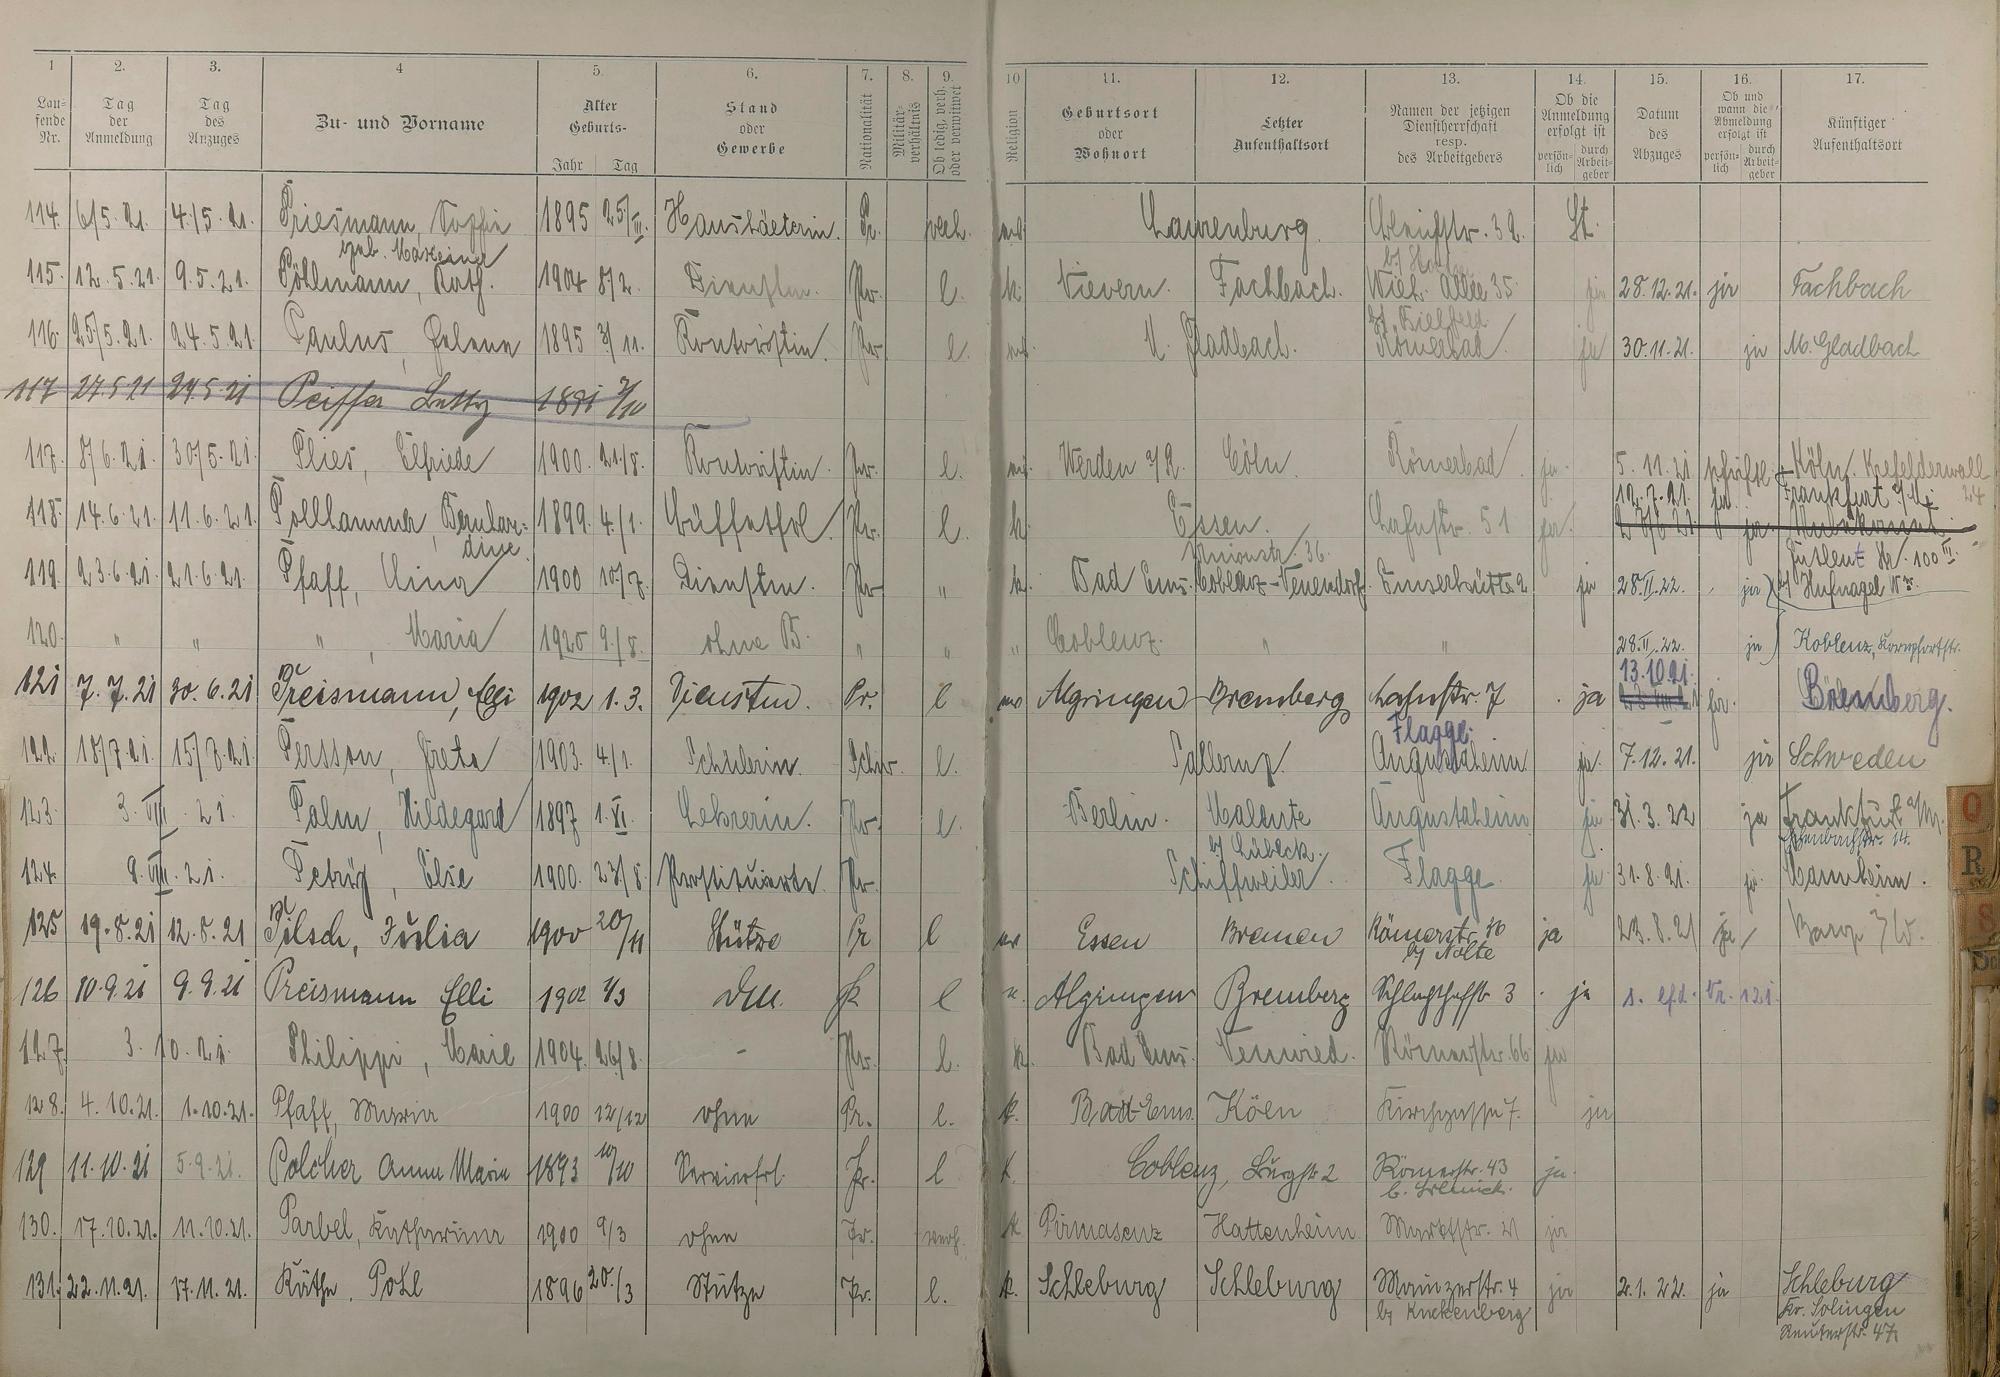 1 2. 3. 4 5. 6. 7. 8. 9. 10 11. 12. 13. 14. 15. 16. 17.
Lau-
fende
Nr.
Tag
der
Anmeldung
Tag
des
Anzuges
Zu- und Vorname
Alter
Geburts-
Jahr Tag
Stand
oder
Gewerbe
Nationalität
Militär-
verhältnis
Ob ledig, verh.
oder verwitwet
Religion
Geburtsort
oder
Wohnort
Letzter
Aufenthaltsort
Namen der jetzigen
Dienstherrschaft
resp.
des Arbeitgebers
Ob die
Anmeldung
erfolgt ist
persön-
lich
durch
Arbeit-
geber
Datum
des
Abzuges
Ob und
wann die
Abmeldung
erfolgt ist
persön-
lich
durch
Arbeit-
geber
Künftiger
Aufenthaltsort
114. 6/5. 21. 4./5. 21. Priesmann, Sophie 1895 25/III. Haushälterin. Pr. verh. Laurenburg. 32. St.
geb.
115. 12. 5. 21. 9. 5. 21. Pöllmann, Kath. 1904 8/2. Dienstm. Pr. l. k. Nievern. Fachbach. Wilh. Allee 35 ja 28. 12. 21. ja Fachbach
116. 25/5. 21. 24. 5. 21. Paulus, Helene 1895 3/11. Kontoristin. Pr. l. M. Gladbach. Römerbad. ja 30. 11. 21. ja M. Gladbach
117 27. 5 21 24. 5. 21 Peiffer Betty 1891 2/10
117. 8/6. 21. 30/5. 21. Plies, Elfriede 1900. 21./8. Kontoristin. Pr. l. Werden a/R. Cöln. Römerbad ja. 5. 11. 21 schriftl. Köln, Krefelderwall 24
12. 7. 21. ja. Frankfurt a/M
118. 14. 6. 21. 11. 6. 21. Pollhammer, Bernhar- 1899. 4./1. Büffetfrl. Pr. l. k. Essen. Lahnstr. 51 ja.
dine. Unionstr. 36. 100 III.
119. 23. 6. 21. 21. 6. 21. Pfaff, Nina 1900 10/7. Dienstm. Pr. " k. Bad Ems. Coblenz-Neuendorf. Emserhütte 2 ja 28. II. 22. ja b/ Hufnagel
120. " " " , Maria 1920 9./8. ohne B. " " " Coblenz. " " 28. II. 22. ja Koblenz, Kornpfortstr.
13. 10. 21.
121 7. 7. 21 30. 6. 21 Preismann, Elli 1902 1. 3. Dienstm. Pr. l Algringen Bremberg Lahnstr. 7 ja ja. Bremberg.
Flagge.
122. 18/7. 21. 15/7. 21. Persson, Greta 1903. 4/1. Schülerin. Schw. l. Augustaheim ja. 7. 12. 21. ja Schweden
123. 3. VIII. 21. Palm, Hildegard 1897 1. XI. Lehrerin. Pr. l. Berlin. Malente Augustaheim ja 31. 3. 22 ja Frankfurt a/M.
b/ Lübeck.
124. 9. VIII. 21. Petrÿ, Else 1900. 23/8. Prostituierte. Pr. Schiffweiler. Flagge ja 31. 8. 21. ja Mannheim.
125 19. 8. 21 12. 8. 21 Pilsch, Julia 1900 20/11 Stütze Pr l Essen Bremen Römerstr. ja 23. 8. 21 ja
b/ Nolte
126 10. 9. 21 9. 9. 21 Preismann Elli 1902 1/3 Dm. Pr l Algringen Bremberg Schlachthofstr 3 ja s. lfd. Nr. 121.
127. 3. 10. 21. Philippi, Marie 1904. 26/8. - Pr. l. k. Bad Ems. Neuwied. Römerstr. 66 ja
128. 4. 10. 21. 1. 10. 21. Pfaff, Maria 1900 12/12 ohne Pr. l. k. Bad Ems. Köln Kirchgasse 7. ja
129 11. 10. 21 5. 9. 21. Polcher Anna Maria 1893 10/10 Servierfrl. Pr. l k. Coblenz, Burgstr 2 Römerstr. 43 ja.
130. 17. 10. 21. 11. 10. 21. Parbel, Katharina 1900 9/3 ohne Pr. verh. k Pirmasenz Hattenheim Marktstr. 21 ja
131. 22. 11. 21. 17. 11. 21. Käthe, Pohl 1896 20./3 Stütze Pr. l. k. Schleburg Schleburg Mainzerstr. 4 ja 2. 1. 22. ja Schleburg
b/ Knekenberg Kr. Solingen
Reuterstr. 47.
Q
R
S